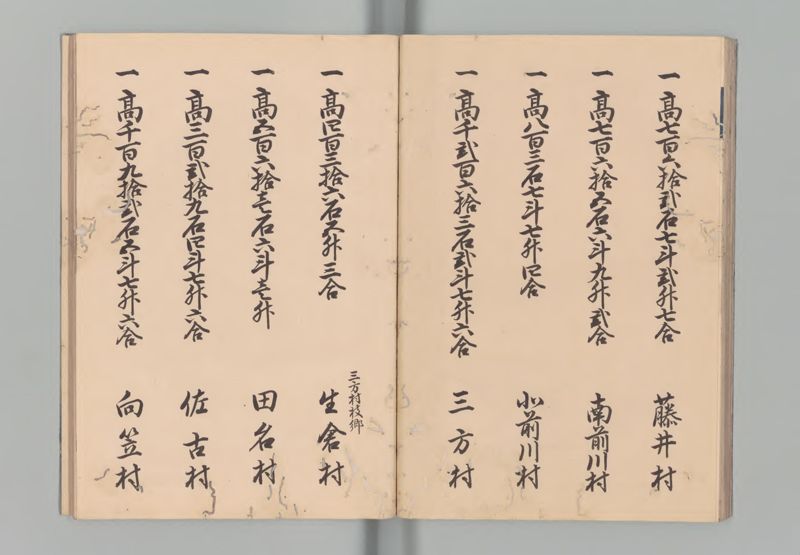 一高七百六拾弐石七斗弐升七合 藤井村
一高七百六拾五石六斗九升弐合 南前川村
一高八百三石七斗七升四合 北前川村
一高千弐百六拾三石弐斗七升六合 三方村
一高四百三拾六石五升三合 三方村枝郷 生倉村
一高五百六拾壱石六斗壱升 田名村
一高三百弐拾九石四斗七升六合 佐古村
一高千百九拾弐石五斗七升六合 向笠村